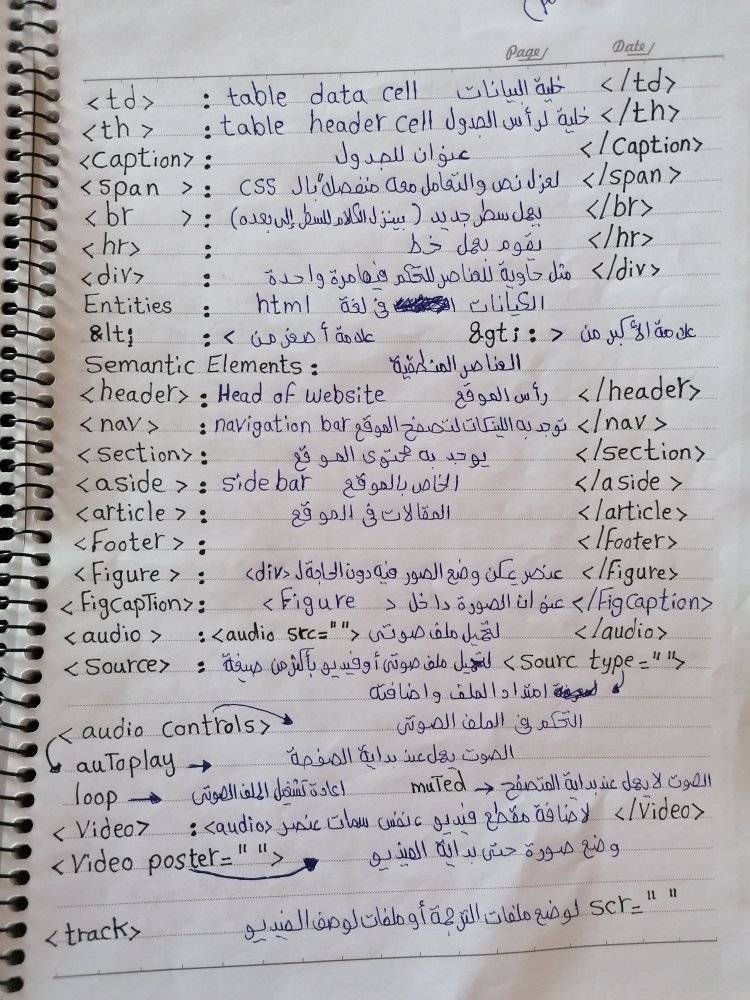 Page/ Date/
<td> : table data cell خلية البيانات </td>
<th> : table header cell خلية لرأس الجدول </th>
<Caption> : عنوان للجدول </Caption>
<span> : لعزل نص والتعامل معه منفصلاً بال CSS </span>
<br> : يعمل سطر جديد (بينزل الكلام للسطر إلى بعده) </br>
<hr> : يقوم بعمل خط </hr>
<div> : مثل حاوية للعناصر للتحكم فيها مرة واحدة </div>
Entities : الكيانات في لغة html
&lt; : علامة أصغر من < &gt; : > علامة الأكبر من
Semantic Elements : العناصر المنطقية
<header> : Head of website رأس الموقع </header>
<nav> : navigation bar توجد به اللينكات لتصفح الموقع </nav>
<section> : يوجد به محتوى الموقع </section>
<aside> : side bar الخاص بالموقع </aside>
<article> : المقالات في الموقع </article>
<Footer> : </footer>
<Figure> : عنصر يمكن وضع الصور فيه دون الحاجة ل <div> </figure>
<FigcapTion> : عنوان الصورة داخل <Figure> </FigCaption>
<audio> : <audio src=" "> لتحميل ملف صوتى </audio>
<Source> : لتحميل ملف صوتى أو فيديو بأكثر من صيغة <Sourc type=" ">
امتداد الملف واضافته
<audio controls> التحكم في الملف الصوتى
auToplay → الصوت يعمل عند بداية الصفحة
loop → اعادة تشغيل الملف الصوتى muTed → الصوت لا يعمل عند بداية المتصفح
<Video> : لإضافة مقطع فيديو، نفس سمات عنصر <audio> </Video>
<Video poster=" "> وضع صورة حتى بداية الفيديو
<track> لوضع ملفات الترجمة أو ملفات لوصف الفيديو scr=" "